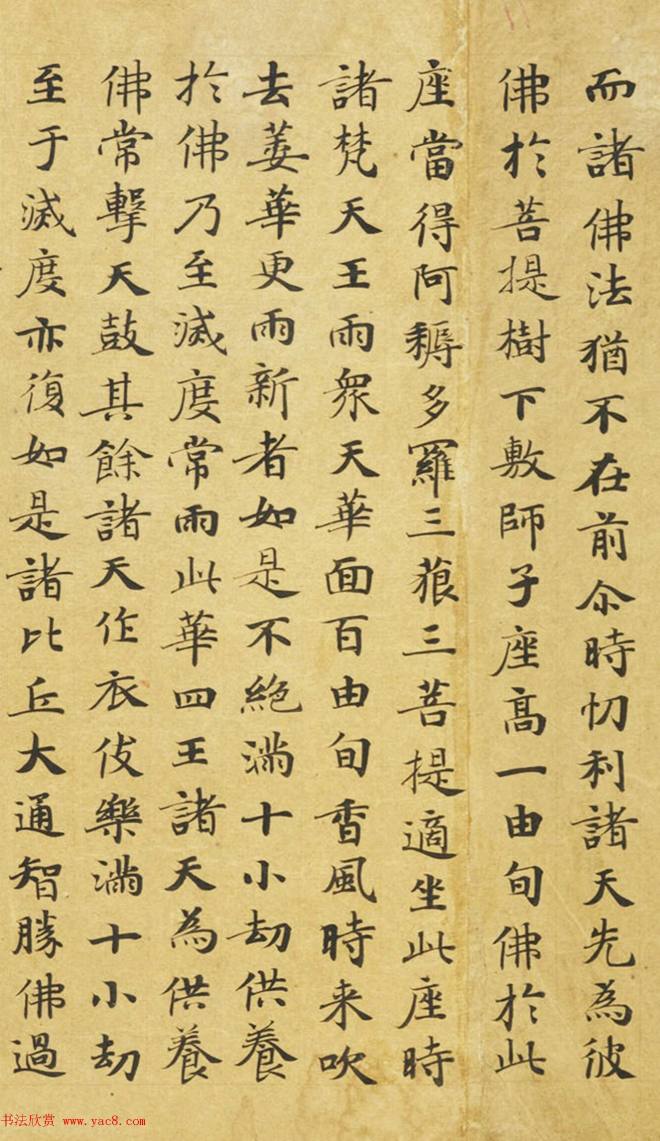 而諸佛法猶不在前尒時忉利諸天先為彼
佛於菩提樹下敷師子座高一由旬佛於此
座當得阿耨多羅三藐三菩提適坐此座時
諸梵天王雨衆天華面百由旬香風時来吹
去萎華更雨新者如是不絕滿十小劫供養
於佛乃至滅度常雨此華四王諸天為供養
佛常擊天鼓其餘諸天作衣伎樂滿十小劫
至于滅度亦復如是諸比丘大通智勝佛過
书法欣赏 www.yac8.com